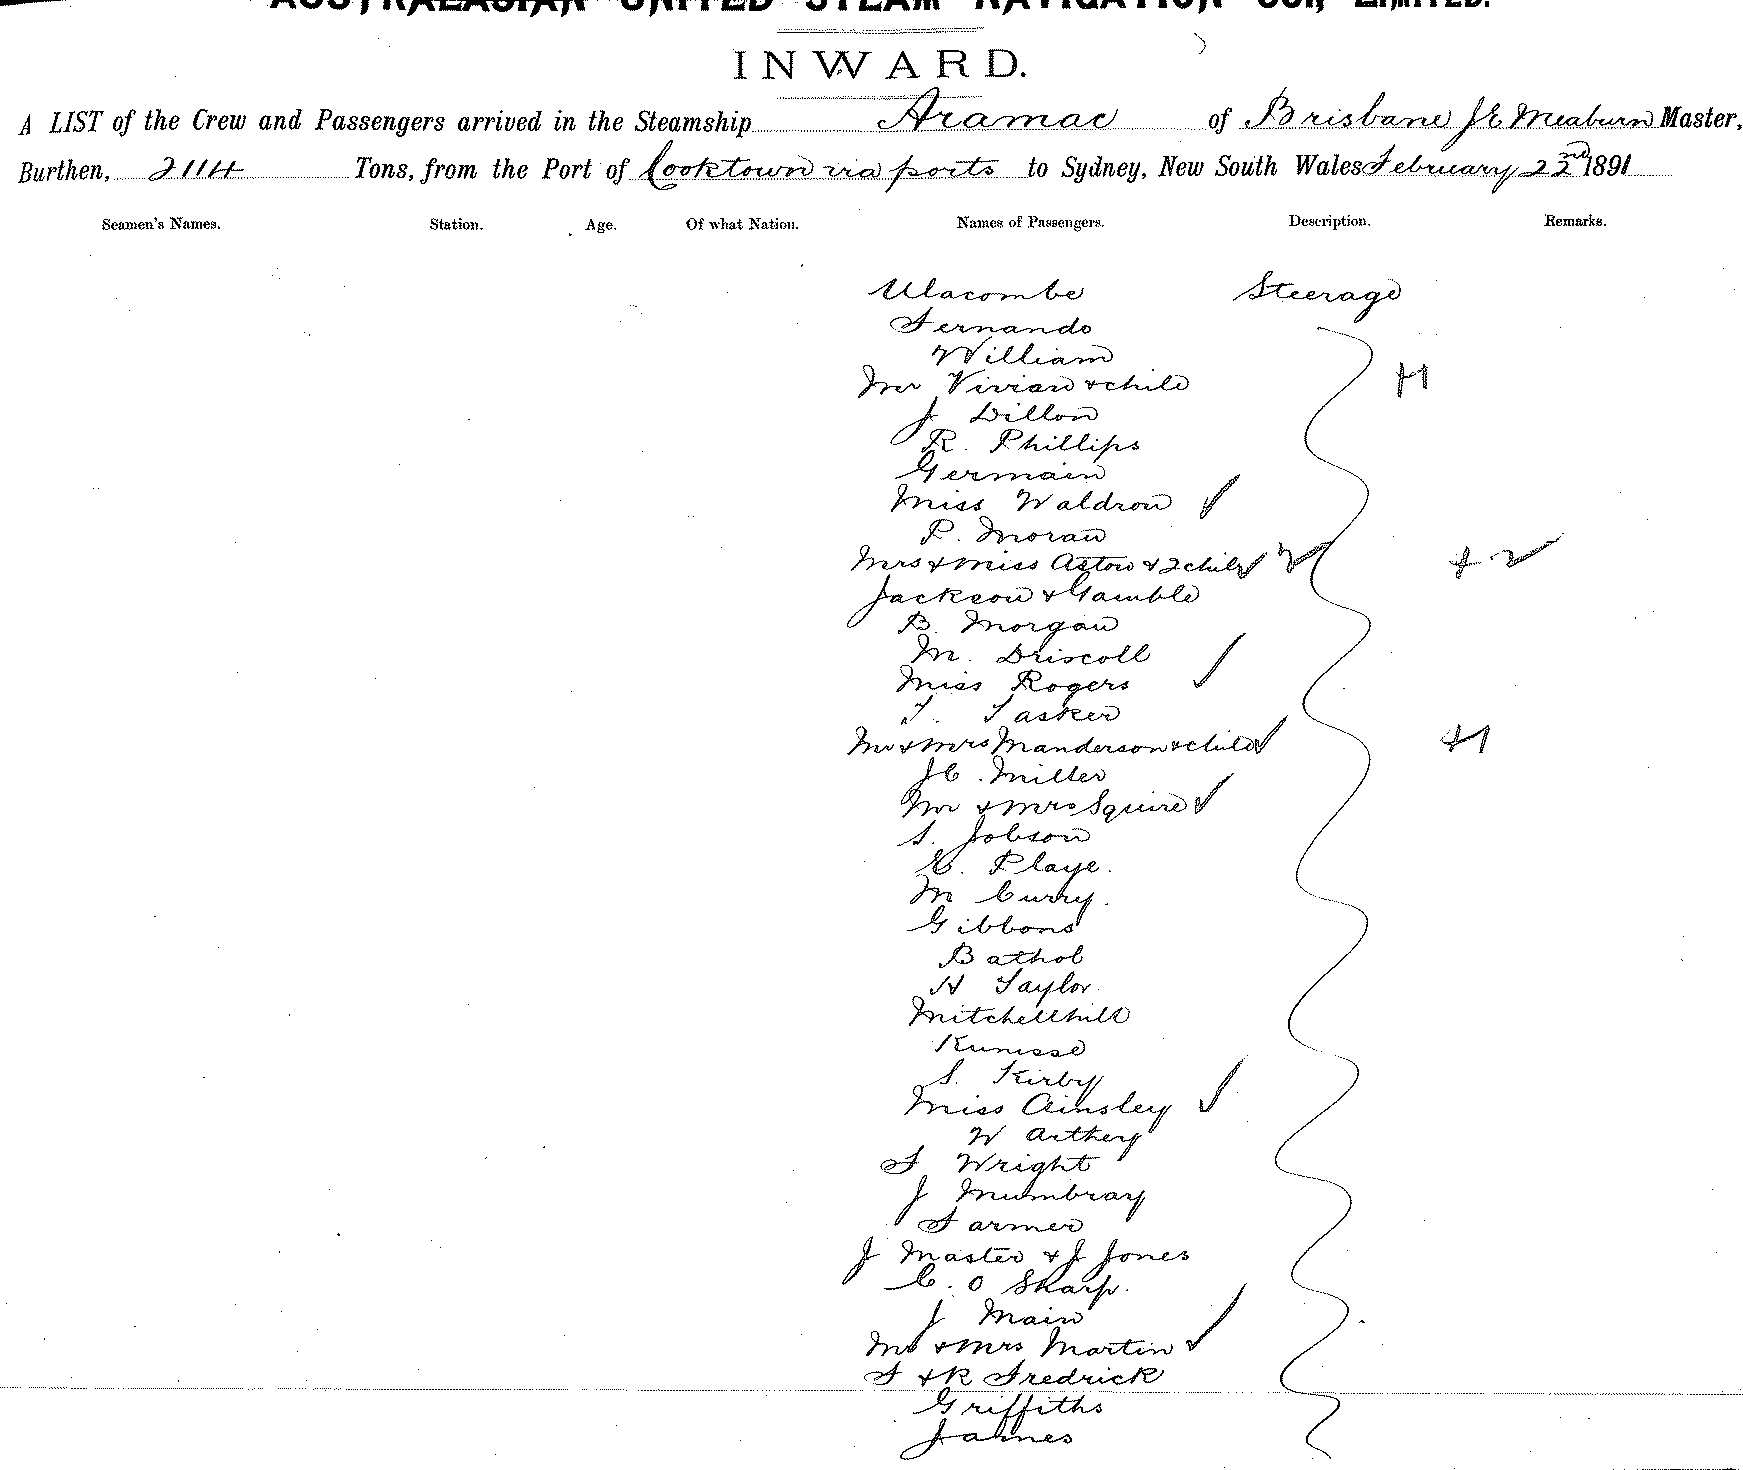 AUSTRALASIAN UNITED STEAM NAVIGATION CO., LIMITED.
INWARD.
A LIST of the Crew and Passengers arrived in the Steamship Aramac of Brisbane J E Meaburn Master,
Burthen, 2114 Tons, from the Port of Cooktown via ports to Sydney, New South Wales February 22nd 1891
Seamen's Names. Station. Age. Of what Nation. Names of Passengers. Description. Remarks.
Ulacombe Steerage
Fernando
William
Mr Vivian & child +1
J Dillon
R. Phillips
Germain
Miss Waldron
P. Moran
Mrs & Miss Aston & 2 child +2
Jackson & Gamble
B. Morgan
M. Driscoll
Miss Rogers
T. Tasker
Mr & Mrs Manderson & child +1
JC. Miller
Mr & Mrs Squire
S. Jobson
E. Playe.
M Curry.
Gibbons
Bathol
H Taylor
Mitchellhill
Kunisse
S. Kirby
Miss Ainsley
W Arthery
F Wright
J Mumbray
Farmer
J Master & J Jones
C. O Sharp.
J Main
Mr & Mrs Martin
F & R Fredrick
Griffiths
James